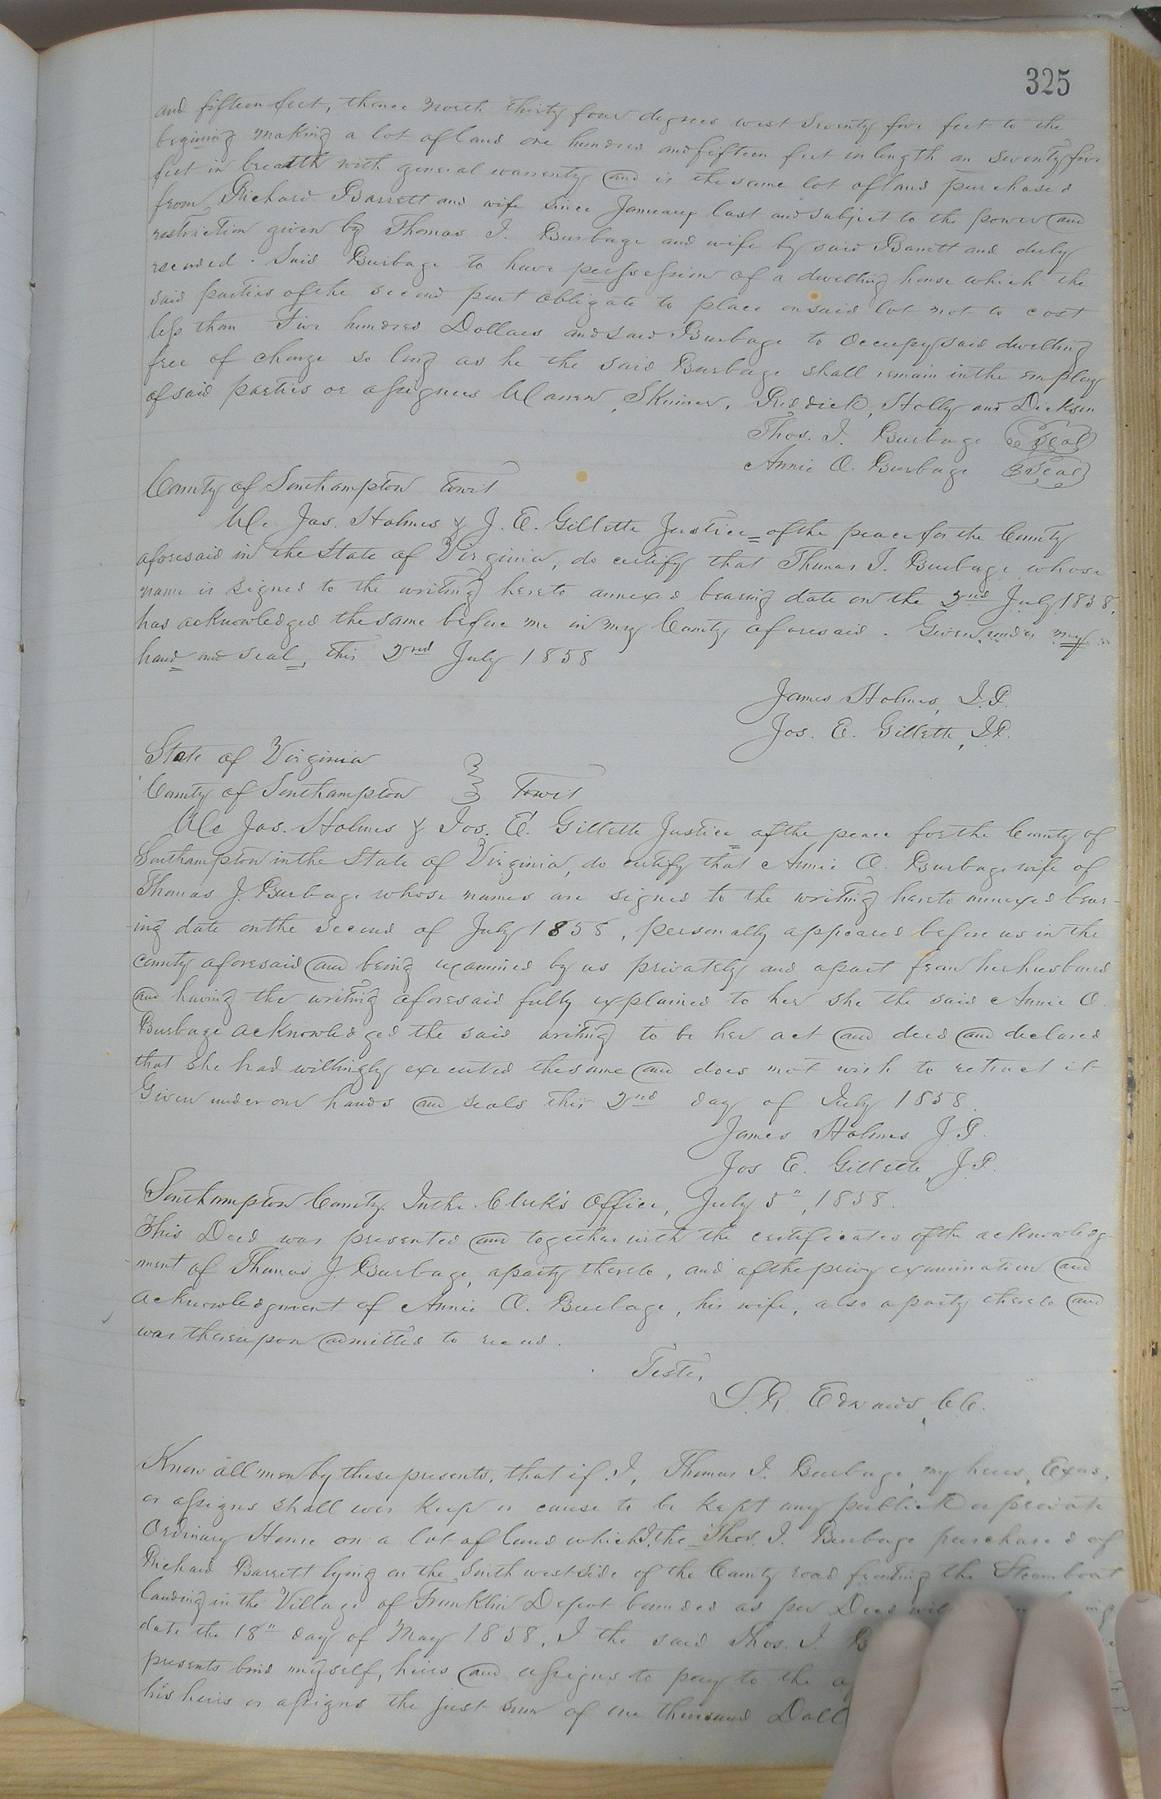 325
and fifteen feet, thence North thirty four degrees west seventy five feet to the
begining making a lot of land one hundred and fifteen feet in length an seventy five
feet in breadth with general warrenty and is the same lot of land purchased
from Richard Barrett and wife since January last and subject to the power and
restriction given by Thomas J. Burbage and wife by said Barrett and duly
recorded. Said Burbage to have possession of a dwelling house which the
said parties of the second part obligate to place on said lot not to cost
less than Five hundred Dollars and said Burbage to occupy said dwelling
free of charge so long as he the said Burbage shall remain in the employ
of said parties or assignees Warren, Skinner, Riddick, Holly and Dickson
Thos. J. Burbage Seal
Annie O. Burbage Seal
County of Southampton Towit
We Jas. Holmes & J. E. Gillette Justice of the peace for the County
aforesaid in the State of Virginia, do certify that Thomas J. Burbage whose
name is signed to the writing hereto annexed bearing date on the 2nd July 1858,
has acknowledged the same before me in my County aforesaid. Given under my
hand and seal, this 2nd July 1858
James Holmes, J.P.
Jos. E. Gillette, J.P.
State of Virginia
County of Southampton } Towit
We Jas. Holmes & Jos. E. Gillette Justice of the peace for the County of
Southampton in the State of Virginia, do certify that Annie O. Burbage wife of
Thomas J. Burbage whose names are signed to the writing hereto annexed bear-
-ing date on the second of July 1858, personally appeared before us in the
county aforesaid and being examined by us privately and apart from her husband
and having the writing aforesaid fully explained to her she the said Annie O.
Burbage acknowledged the said writing to be her act and deed and declared
that she had willingly executed the same and does not wish to retract it
Given under our hands and seals this 2nd day of July 1858.
James Holmes J.P.
Jos E. Gillette, J.P.
Southampton County. In the Clerk's Office, July 5", 1858.
This Deed was presented and together with the certificates of the acknowledg-
-ment of Thomas J. Burbage, a party thereto, and of the privy examination and
acknowledgment of Annie O. Burbage, his wife, also a party thereto and
was thereupon admitted to record.
Teste,
L. R. Edwards, C.C.
Know all men by these presents, that if I, Thomas J. Burbage, my heirs, Exors,
or assigns shall ever keep or cause to be kept any publick or private
Ordinary House on a lot of land which I, the Thos. J. Burbage purchased of
Richard Barrett lying on the South west side of the County road fronting the Steamboat
landing in the Village of Franklin Depot bounded as per Deed
date the 18" day of May 1858, I the said Thos. J. B
presents bind myself, heirs and assigns to pay to the
his heirs or assigns the just sum of one thousand Doll